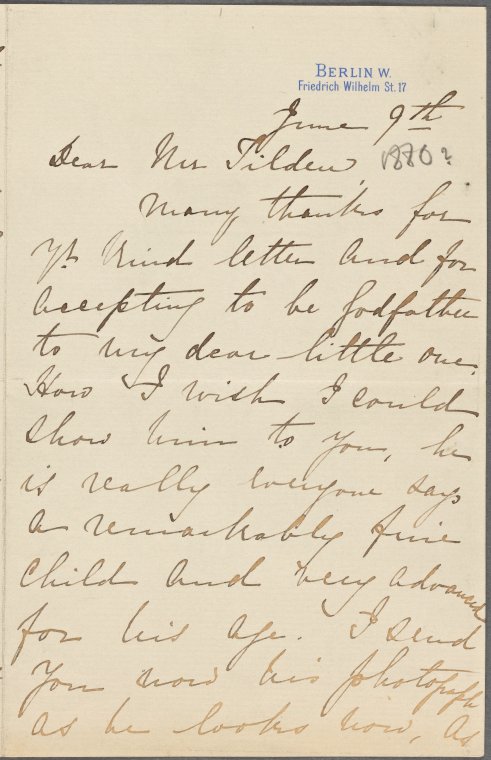 BERLIN W.
Friedrich Wilhelm St. 17
June 9th
1880?
Dear Mr Tilden,
Many thanks for
yr kind letter and for
accepting to be Godfather
to my dear little one.
How I wish I could
show him to you, he
is really everyone says
a remarkably fine
child and very advanced
for his age. I send
you now his photograph
as he looks now, as